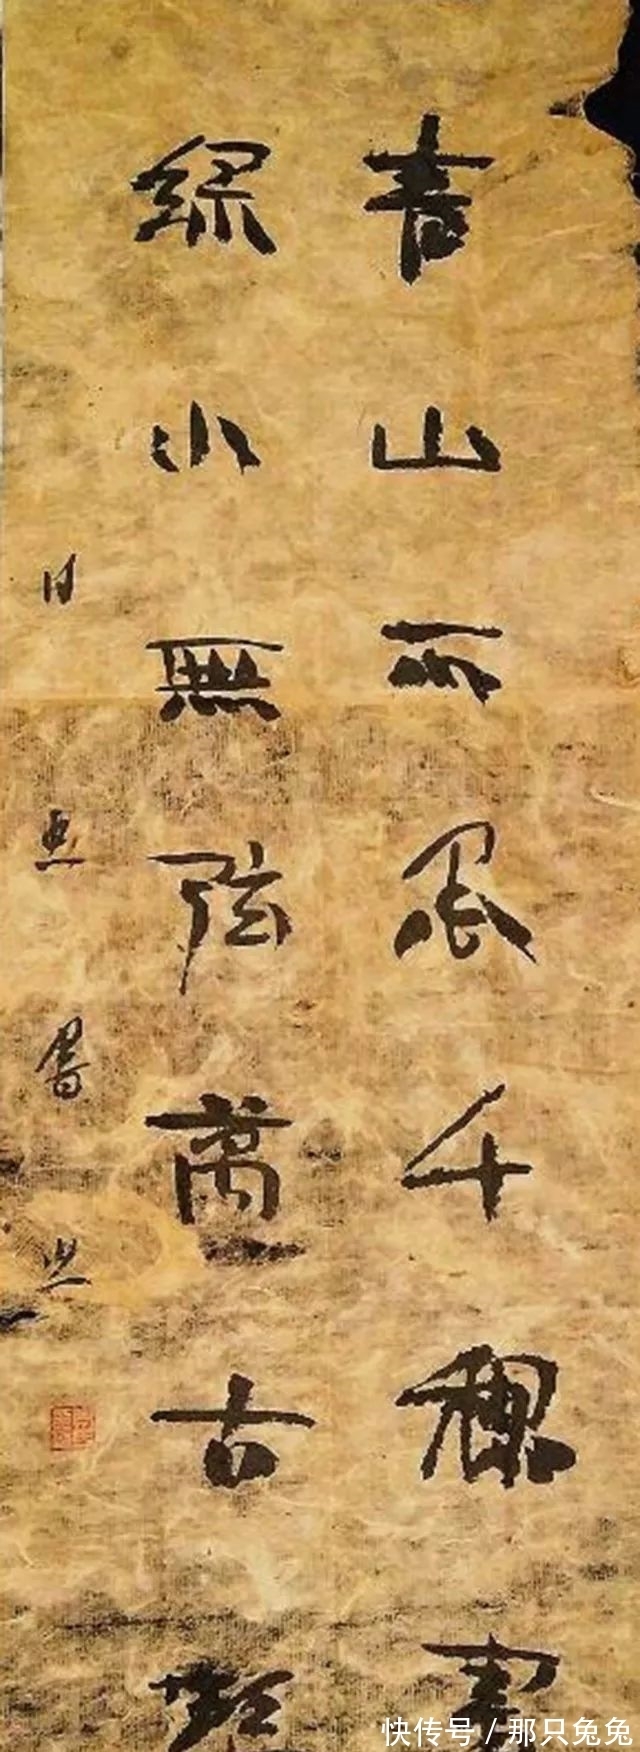 青山不千秋畫
綠水無弦萬古
書
快传号 / 那只兔兔